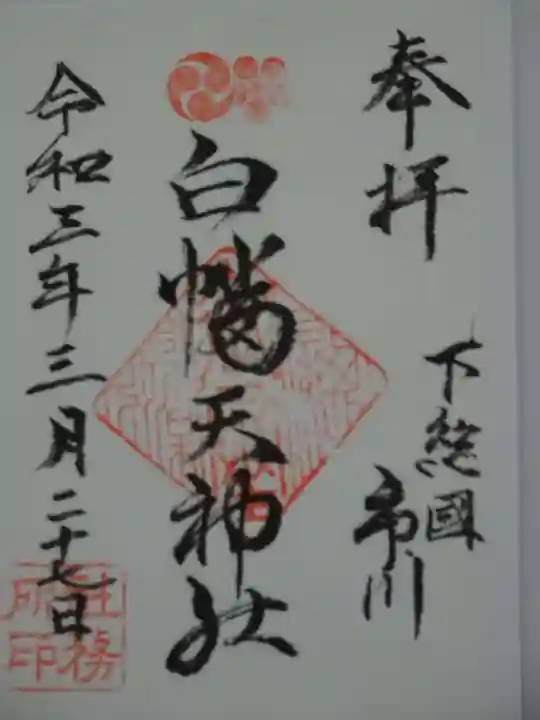 奉拝
下總國
市川
白幡天神社
令和三年三月二十七日
社務
所印